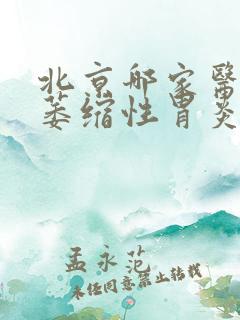 北京那家醫
萎缩性胃炎
孟永范
未经同意禁止转载